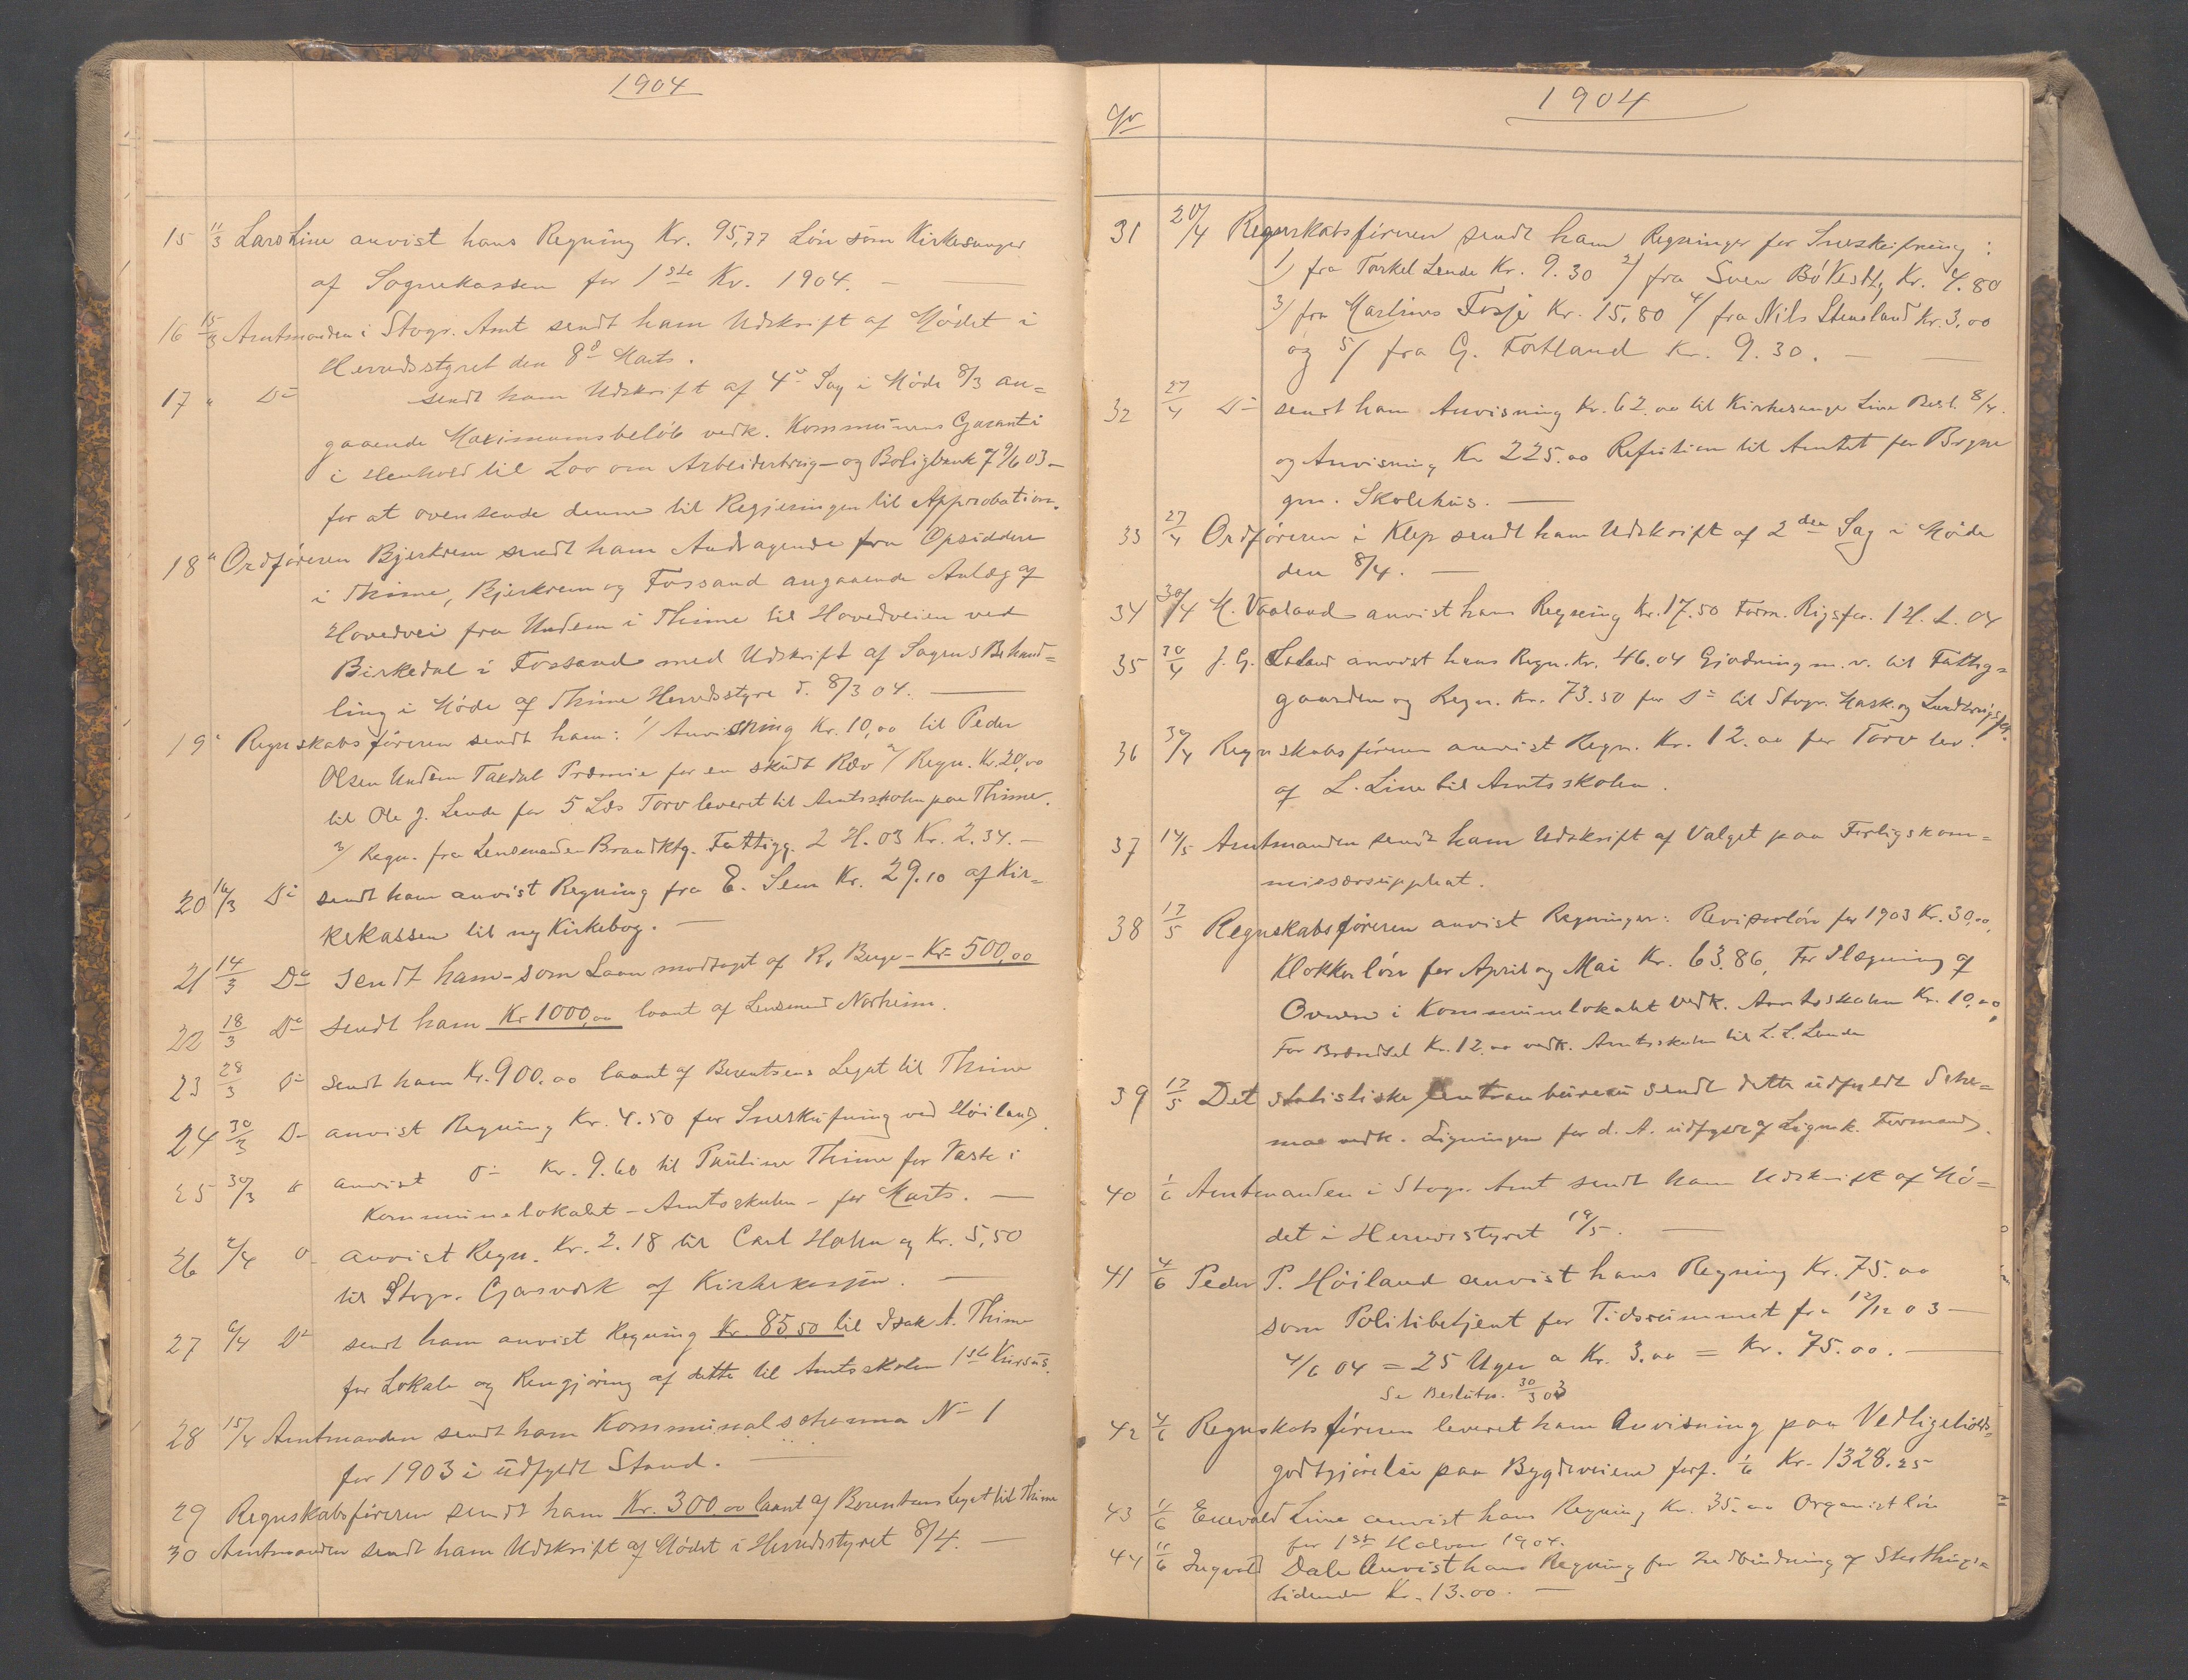 1904
15 11/3 Lars Line anvist hans Regning Kr. 95,77 Løn som Kirkesanger
af Sognekassen for 1ste Kv. 1904. —
16 15/3 Amtmanden i Stvgr. Amt sendt ham Udskrift af Mødet i
Herredsstyret den 8de Marts.
17 " Do sendt ham Udskrift af 4de Sag i Møde 8/3 an=
gaaende Maximumsbeløb vedk. Kommunens Garanti
i Henhold til Lov om Arbeiderbrug- og Boligbank 9/6 03 –
for at oversende denne til Regjeringen til Approbation.
18 " Ordføreren Bjerkrem sendt ham Andragende fra Opsiddere
i Thime, Bjerkrem og Fossand angaaende Anlæg af
Hovedvei fra Undem i Thime til Hovedveien ved
Birkedal i Fossand med Udskrift af Sagens Behand=
ling i Møde af Thime Herredsstyre d. 8/3 04. —
19 " Regnskabsføreren sendt ham: 1/ Anvisning Kr. 10,00 til Peder
Olsen Undem Taxdal Præmie for en skudt Ræv 2/ Regn. Kr. 20,00
til Ole J. Lende for 5 Læs Torv leveret til Amtsskolen paa Thime.
3/ Regn. fra Lensmanden Brandktg. Fattigg. 2 H. 03 Kr. 2.34. –
20 16/3 Do sendt ham anvist Regning fra E. Sem Kr. 29.10 af Kir=
kekassen til ny Kirkebog. —
21 14/3 Do sendt ham – som Laan modtaget af R. Berge – Kr 500,00
22 18/3 Do sendt ham Kr 1000,00 laant af Lensmand Norheim.
23 28/3 Do sendt ham Kr. 900.00 laant af Berentsens Legat til Thime
24 30/3 Do anvist Regning Kr. 4.50 for Sneskufning ved Høiland.
25 30/3 " anvist Do Kr. 9.60 til Pauline Thime for Vask i
Kommunelokalet – Amtsskolen – for Marts. —
26 2/4 Do anvist Regn. Kr. 2.18 til Carl Hahn og Kr. 5,50
til Stvgr. Gasverk af Kirkekassen. —
27 6/4 Do sendt ham anvist Regning Kr. 85 50 til Isak A. Thime
for Lokale og Rengjøring af dette til Amtsskolen 1ste Kursus.
28 15/4 Amtmanden sendt ham Kommunalschema No 1
for 1903 i udfyldt Stand. —
29 Regnskabsføreren sendt ham Kr. 300,00 laant af Berentsens Legat til Thime
30 Amtmanden sendt ham Udskrift af Mødet i Herredsstyret 8/4. —
1904
31 20/4 Regnskabsføreren sendt ham Regninger for Sneskufning:
1/ fra Torkel Lende Kr. 9.30 2/ fra Sven Bø Kr. 4.80
3/ fra Martinus Fosje Kr. 15,80 4/ fra Nils Steneland Kr. 3,00
og 5/ fra G. Fortland Kr. 9.30. —
32 27/4 Do sendt ham Anvisning Kr. 62.00 til Kirkesanger Line Besl. 8/4.
og Anvisning Kr 225.00 Refusion til Amtet for Bryne
gm. Skolehus. —
33 27/4 Ordføreren i Klep sendt ham Udskrift af 2den Sag i Møde
den 8/4. —
34 30/4 M. Vaaland anvist hans Regning Kr. 17.50 Form. Rigsfor. 1 H. L. 04
35 30/4 J. G. Loland anvist hans Regn. Kr. 46.04 Gjødning m. v. til Fattig=
gaarden og Regn. Kr. 73.50 for Do til Stvgr. Mask. og Landbrugsfor.
36 30/4 Regnskabsføreren anvist Regn. Kr. 12.00 for Torv lev.
af L. Line til Amtsskolen.
37 14/5 Amtmanden sendt ham Udskrift af Valget paa Forligskom=
missærsuppleat.
38 17/5 Regnskabsføreren anvist Regninger: Revisorløn for 1903 Kr. 30,00,
Klokkerløn for April og Mai Kr. 63.86, For Ilægning af
Ovnen i Kommunelokalet vedk. Amtsskolen Kr. 10.00,
For Brændsel Kr. 12.00 vedk. Amtsskolen til L. L. Lende
39 17/5 Det statistiske Centranbureau sendt dette udfyldt Sche=
mae vedk. Ligningen for d. A. udfyldt af Lignk. Formand.
40 1/6 Amtmanden i Stvgr. Amt sendt ham Udskrift af Mø=
det i Herredsstyret 19/5. —
41 4/6 Peder P. Høiland anvist hans Regning Kr. 75.00
som Politibetjent for Tidsrummet fra 12/12 03 –
4/6 04 = 25 Uger a Kr. 3.00 = Kr. 75.00. —
Se Beslutn. 30/3 03
42 4/6 Regnskabsføreren leveret ham Anvisning paa Vedligeholds=
godtgjørelse paa Bygdeveiene forf. 1/6 Kr. 1328.25
43 11/6 Enevald Line anvist hans Regning Kr. 35.00 Organistløn
for 1ste Halvaar 1904.
44 11/6 Ingvald Dale Anvist hans Regning for Indbinding af Storthings=
tidende Kr. 13.00. —